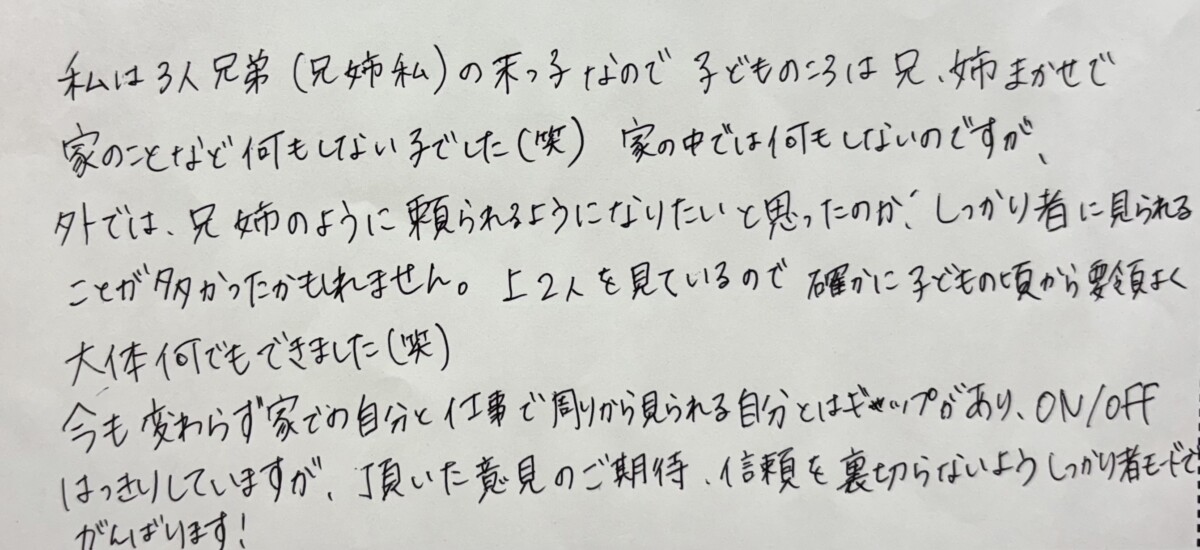 私は3人兄弟(兄姉私)の末っ子なので子どものころは兄、姉まかせで
家のことなど何もしない子でした(笑) 家の中では何もしないのですが、
外では、兄姉のように頼られるようになりたいと思ったのか、しっかり者に見られる
ことが多かったかもしれません。上2人を見ているので確かに子どもの頃から要領よく
大体何でもできました(笑)
今も変わらず家での自分と仕事で周りから見られる自分とはギャップがあり、ON/OFF
はっきりしていますが、頂いた意見のご期待、信頼を裏切らないようしっかり者モードで
がんばります!